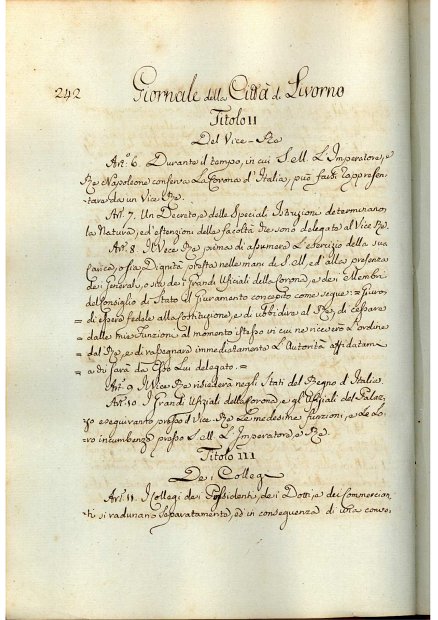 242 Giornale della Città di Livorno
Titolo II
Del Vice-Re
Art.º 6. Durante il tempo, in cui S. M. L'Imperatore, e
Re Napoleone conserva La Corona d'Italia, può farsi rappresen-
tare da un Vice Re.
Art.º 7. Un Decreto, e delle Speciali Istruzioni determinano
la Natura, ed estenzioni della facoltà che sono delegate al Vice Re.
Art. 8. Il Vece Re prima di assumere L'esercizio della sua
Carica, o sia Dignità presta nelle mani di S. M. ed alla presenza
dei Generali, o sia dei Grandi Ufiziali della Corona, e dei Membri
del Consiglio di Stato il Giuramento concepito come segue: = Giuro
= di essere fedele alla Costituzione, e di ubbidire al Re, di cessare
= dalle mie Funzioni al momento istesso in cui ne riceverò L'ordine
= dal Re, e di rassegnare immediatamente L'Autorità affidatami
= a chi sarà da Esso Lui delegato. =
Art. 9. Il Vice Re risiederà negli Stati del Regno d'Italia
Art. 10. I Grandi Ufiziali della Corona, e gl'Ufiziali del Palaz-
zo eseguiranno presso il Vice Re Le medesime funzioni, e Le Lo-
ro incumbenze presso S. M. L'Imperatore, e Re
Titolo III
Dei Collegi
Art. 11. I Collegi dei Possidenti, dei Dotti, e dei Commercian-
ti si radunano Separatamente, ed in conseguenza di una convo-